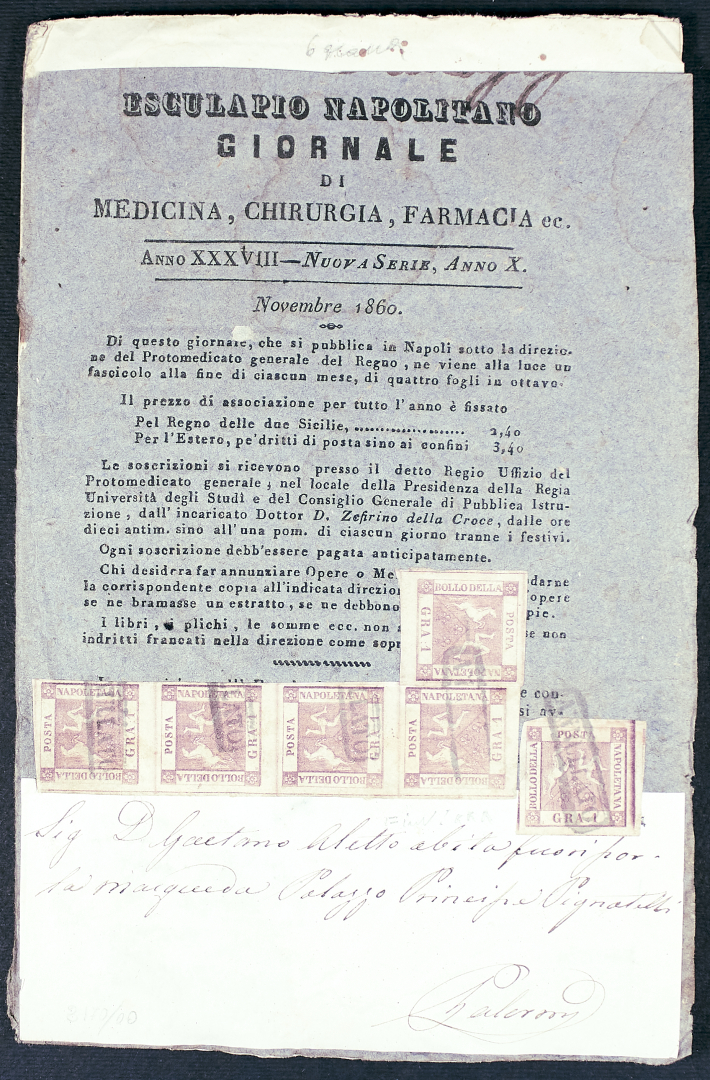 6 grana
ESCULAPIO NAPOLITANO
GIORNALE
DI
MEDICINA, CHIRURGIA, FARMACIA ec.
ANNO XXXVIII—NUOVA SERIE, ANNO X.
Novembre 1860.
Di questo giornale, che si pubblica in Napoli sotto la direzio-
ne del Protomedicato generale del Regno, ne viene alla luce un
fascicolo alla fine di ciascun mese, di quattro fogli in ottavo.
Il prezzo di associazione per tutto l'anno è fissato
Pel Regno delle due Sicilie, .................... 2,40
Per l'Estero, pe'dritti di posta sino ai confini 3,40
Le soscrizioni si ricevono presso il detto Regio Uffizio del
Protomedicato generale, nel locale della Presidenza della Regia
Università degli Studi e del Consiglio Generale di Pubblica Istru-
zione, dall'incaricato Dottor D. Zefirino della Croce, dalle ore
dieci antim. sino all'una pom. di ciascun giorno tranne i festivi.
Ogni soscrizione debb'essere pagata anticipatamente.
Chi desidera far annunziare Opere o Me darne
la corrispondente copia all'indicata direzion opere
se ne bramasse un estratto, se ne debbono pie.
I libri, i plichi, le somme ecc. non se non
indritti francati nella direzione come sopr
BOLLO DELLA POSTA NAPOLETANA GRA 1
e con-
si av-
POSTA NAPOLETANA GRA 1 BOLLO DELLA
POSTA NAPOLETANA GRA 1 BOLLO DELLA
POSTA NAPOLETANA GRA 1 BOLLO DELLA
POSTA NAPOLETANA GRA 1 BOLLO DELLA
BOLLO DELLA POSTA NAPOLETANA GRA 1
Sig D Gaetano Aletto abita fuori por-
ta maqueda Palazzo Principe Pignatelli
Palermo